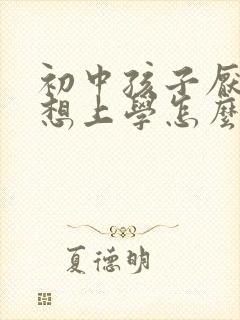 初中孩子厌
想上學怎麼
夏德明